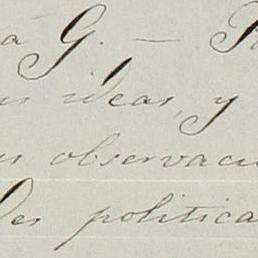 a G. —
ideas, y
observaci
des politica